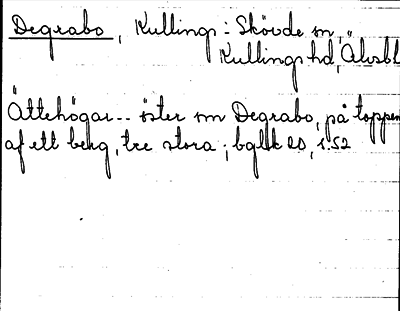 Degrabo, Kullings-Skövde sn,
Kullings hd, Älvsbl
Ättehögar -- öster om Degrabo, på toppen
af ett berg, tre stora; bglk 20, s. 52